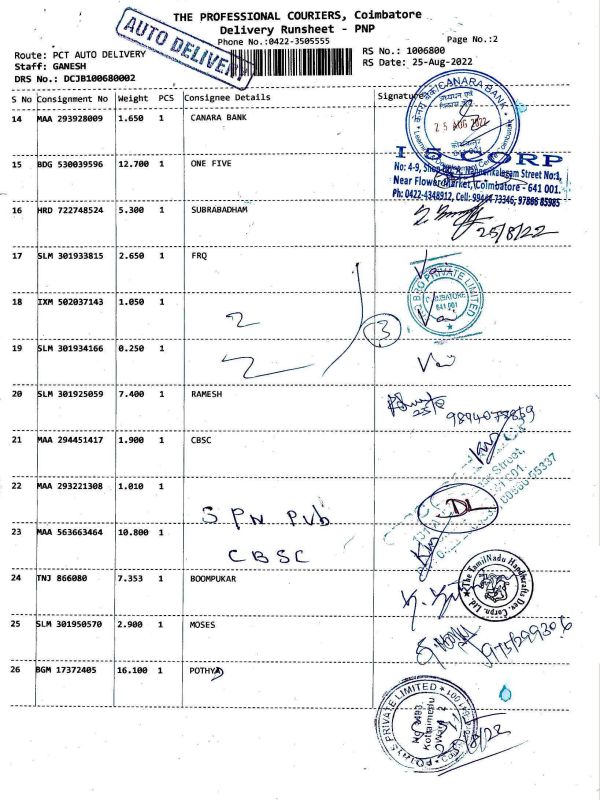 THE PROFESSIONAL COURIERS, Coimbatore
Delivery Runsheet - PNP
Phone No.:0422-3505555
Page No.:2
AUTO DELIVERY
Route: PCT AUTO DELIVERY
RS No.: 1006800
Staff: GANESH
RS Date: 25-Aug-2022
DRS No.: DCJB100680002
S No Consignment No Weight PCS Consignee Details Signature
14 MAA 293928009 1.650 1 CANARA BANK
CANARA BANK
25 AUG 2022
15 BDG 530039596 12.700 1 ONE FIVE
I 5 CORP
Near Flower Market, Coimbatore - 641 001.
Ph: 0422-4348912, Cell: 99444 73346, 97866 85985
16 HRD 722748524 5.300 1 SUBRABADHAM
25/8/22
17 SLM 301933815 2.650 1 FRQ
18 IXM 502037143 1.050 1
PRIVATE LIMITED
COIMBATORE
641 001
2
3
19 SLM 301934166 0.250 1
2
20 SLM 301925059 7.400 1 RAMESH
21 MAA 294451417 1.900 1 CBSC
22 MAA 293221308 1.010 1
DL
S.P.N Pvb
23 MAA 563663464 10.800 1
CBSC
24 TNJ 866080 7.353 1 BOOMPUKAR
The TamilNadu Handicrafts Dev. Corpn. Ltd.
25 SLM 301950570 2.900 1 MOSES
26 BGM 17372405 16.100 1 POTHY
PRIVATE LIMITED